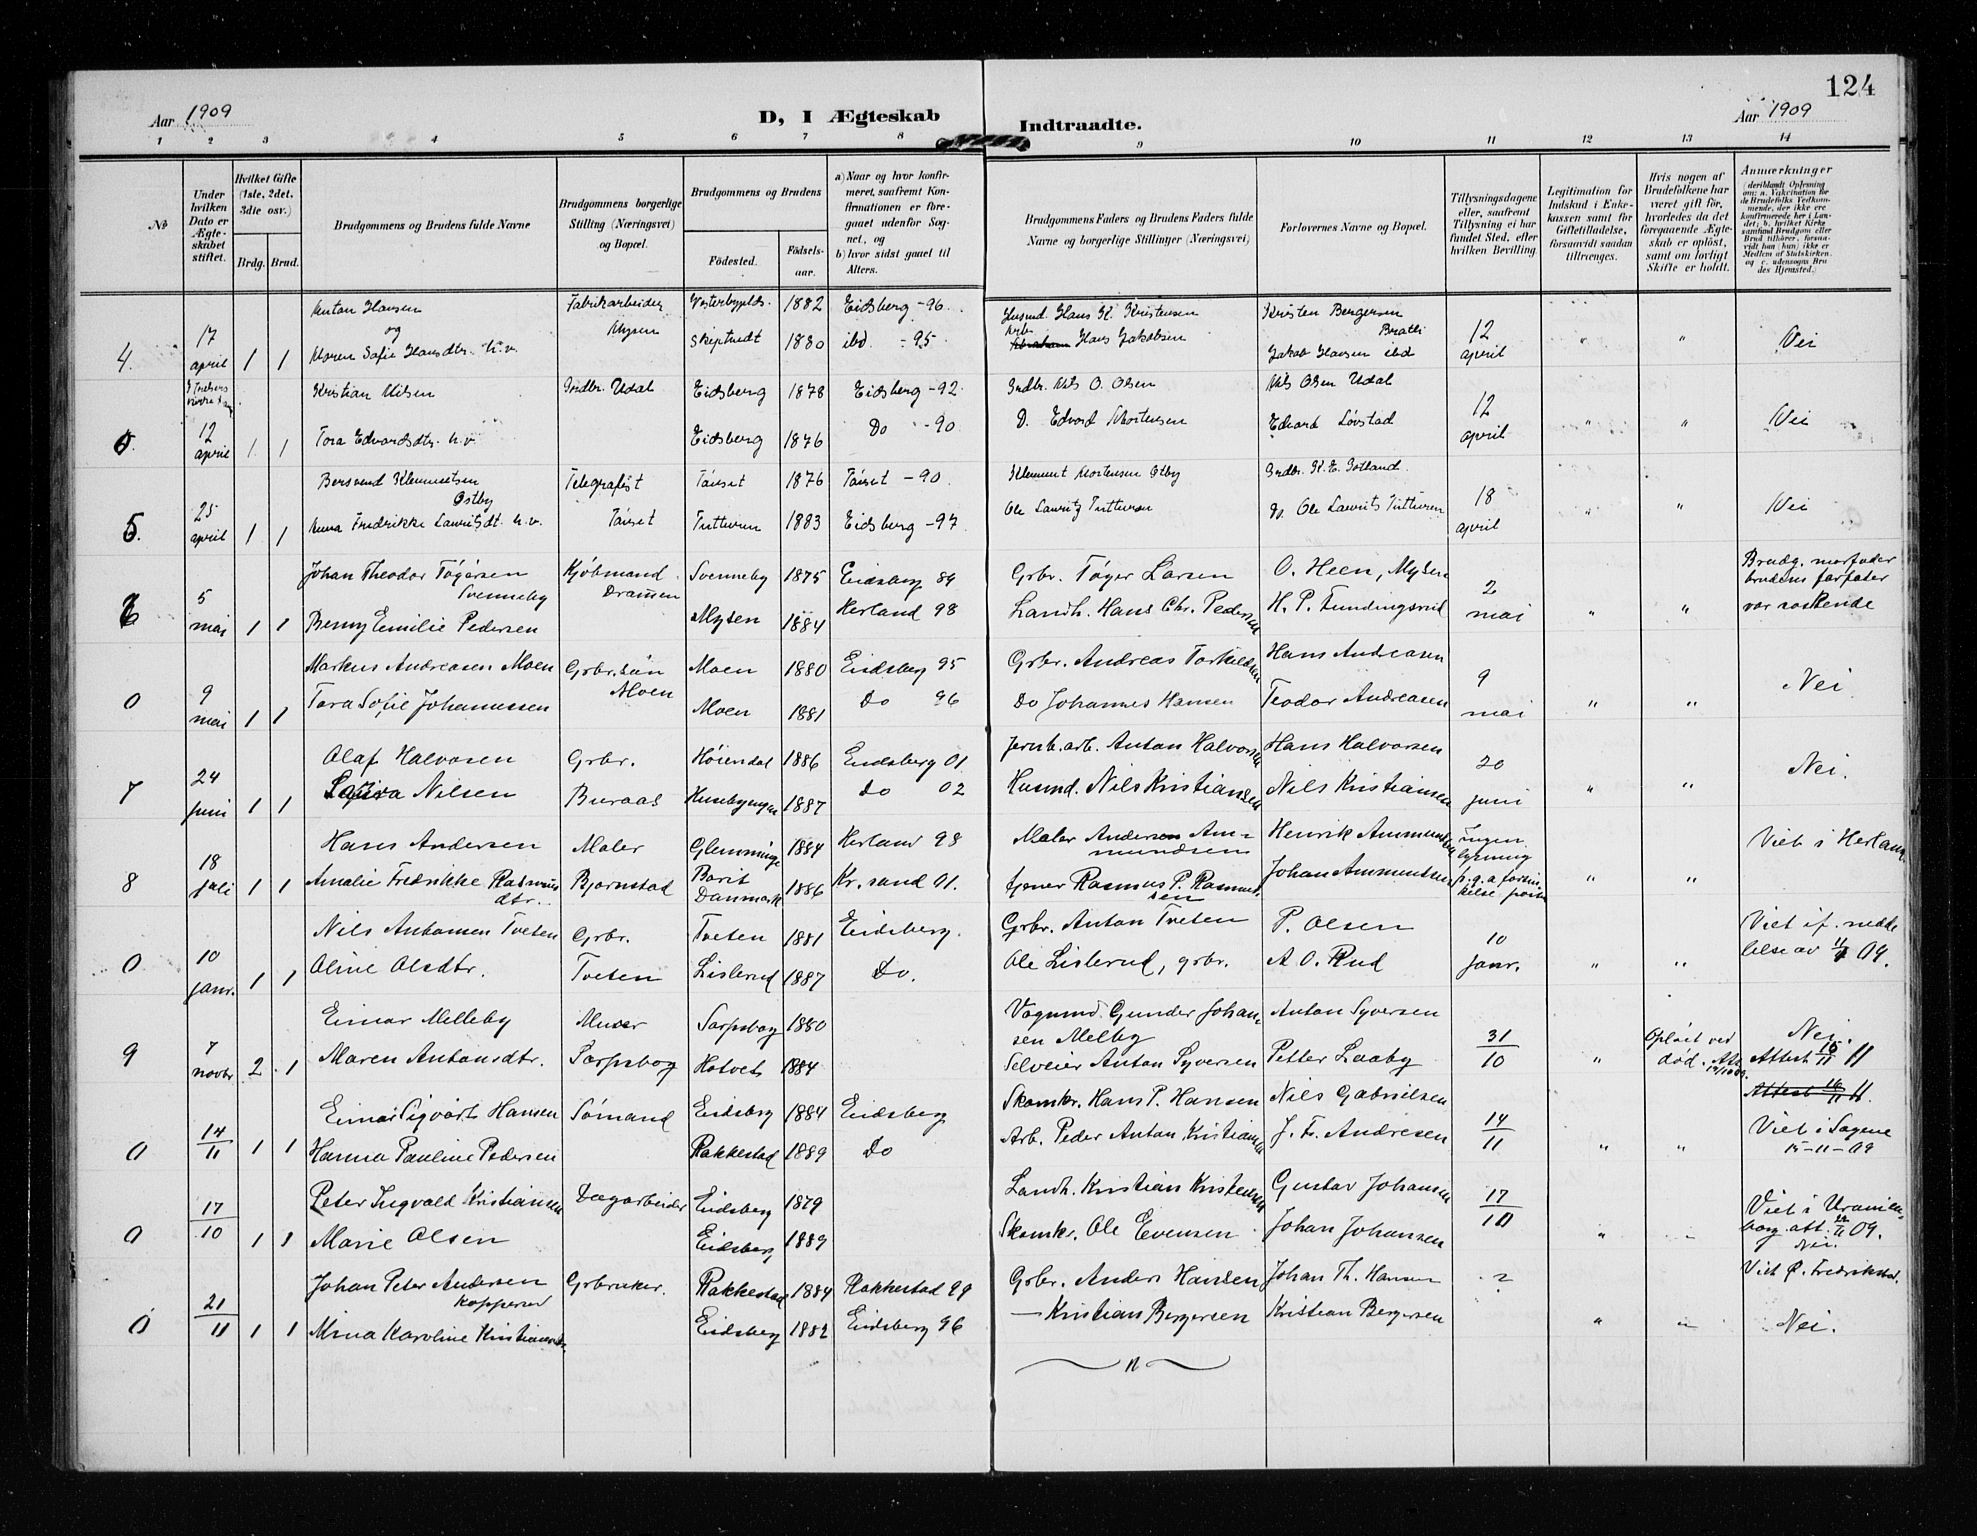 124
Aar 1909
D, I Ægteskab Indtraadte.
Aar 1909
1 2 3 4 5 6 7 8 9 10 11 12 13 14
No
Under hvilken Dato er Ægteskabet stiftet.
Hvilket Gifte (1ste, 2det, 3die osv.)
Brdg. Brud.
Brudgommens og Brudens fulde Navne
Brudgommens borgerlige Stilling (Næringsvei) og Bopæl.
Brudgommens og Brudens
Fødested. Fødselsaar.
a) Naar og hvor konfirmeret, saafremt Konfirmationen er foregaaet udenfor Sognet, og
b) hvor sidst gaaet til Alters.
Brudgommens Faders og Brudens Faders fulde Navne og borgerlige Stillinger (Næringsvei)
Forlovernes Navne og Bopæl.
Tillysningsdagene eller, saafremt Tillysning ei har fundet Sted, efter hvilken Bevilling.
Legitimation for Indskud i Enkekassen samt for Giftetilladelse, forsaavidt saadan tiltrænges.
Hvis nogen af Brudefolkene har været gift før, hvorledes da det foregaaende Ægteskab er opløst, samt om lovligt Skifte er holdt.
Anmærkninger (deriblandt Oplysning om: a. Vakcination for de Brudefolks Vedkommende, der ikke ere konfirmerede her i Landet; b. hvilket Kirkesamfund Brudgom eller Brud tilhører, forsaavidt han (hun) ikke er Medlem af Statskirken. og c. udensogns Brudes Hjemsted.)
Anton Hansen Fabrikarbeider 1882 Eidsberg - 96. Husmd. Hans K. Kristensen Kristen Bergersen
17 og Mysen Bratli 12
4. april 1 1 Maren Sofie Hansdtr. u.v. Skiptvedt 1880 ibd - 95 Arb. Hans Jakobsen Jakob Hansen ibd april " " Nei
Kristian Nilsen Grdbr. Udal Eidsberg 1878 Eidsberg - 92. Grdbr. Nils O. Olsen Nils Olsen Udal
12 12
0. april 1 1 Tora Edvardsdtr. u.v. Eidsberg 1876 Do - 90 D. Edvard Mortensen Edvard Løvstad april " " Nei
Bersvend Klemmetsen Østby Telegrafist Tønset 1876 Tønset - 90 Klemmet Mortensen Østby Grdbr. K. E. Gotland.
25 18
5. april 1 1 Anna Fredrikke Lauritsdt. u.v. Tønset Tutturen 1883 Eidsberg - 97 Ole Lauritz Tutturen Do. Ole Laurits Tutturen april " " Nei
Johan Theodor Tøgersen Svenneby Kjøbmand Drammen Svenneby 1875 Eidsberg 89 Grbr. Tøger Larsen O. Heen, Mysen Brudg. morfader
5 2 brudens farfater
6 mai 1 1 Benny Emilie Pedersen Mysen 1884 Herland 98 Landh. Hans Chr. Pedersen H. P. Fundingsrud mai " " var søskende
Markus Andreasen Moen Grbr.søn Moen Moen 1880 Eidsberg 95 Grbr. Andreas Torkildsen Hans Andreasen
9 9
0 mai 1 1 Tora Sofie Johannessen Moen 1881 Do 96 Do Johannes Hansen Teodor Andreasen mai " " Nei.
Olaf Halvosen Grbr. Høiendal 1886 Eidsberg 01. Jernb.arb. Anton Halvorsen Hans Halvorsen
24 20
7 juni 1 1 Nilsen Buraas 1887 Do 02 Husmd. Nils Kristiansen Nils Kristiansen juni " " Nei.
Hans Andersen Maler Glemminge 1884 Herland 98 Maler Andersen Ammundsen Henrik Ammundsen Ingen lysning
18
8 juli 1 1 Amalie Fredrikke Rasmusdtr. Bjørnstad Danmark 1886 Kr.sand 01. Rasmus P. Rasmussen Johan Ammundsen " " Viet i Herland
Nils Antonsen Tveten Grbr. Tveten 1881 Eidsberg. Grbr. Anton Tveten P. Olsen 10 Viet if. meddelelse av 09.
10
0 janr. 1 1 Oline Olsdtr. Tveten Lislerud 1887 Do. Ole Lislerud, grbr. A. O. Rud janr. " "
Einar Melleby Murer Sarpsborg 1880 Vognmd. Gunder Johansen Melby Anton Syversen 31 Opløst ved Nei.
7
9 novbr 2 1 Maren Antonsdtr. Sarpsborg Hotvet 1884 Selveier Anton Syversen Petter Laaby 10 " død. Attest 11
Einar Sigvart Hansen Sømand Eidsberg 1884 Eidsberg Skomkr. Hans P. Hansen Nils Gabrielsen 14
14 Viet i Sagene
0 11 1 1 Hanna Pauline Pedersen Rakkestad 1889 Do Arb. Peder Anton Kristiansen J. Fr. Andresen 11 " " 15-11-09
Peter Ingvald Kristiansen Dagarbeider Eidsberg 1879 Landh. Kristian Kristensen Gustav Johansen 17 Viet i Uranien-
17 borg. att. 09.
0 10 1 1 Marie Olsen Eidsberg 1889 Skomkr. Ole Evensen Johan Johansen 10 " " Nei.
Johan Peter Andersen Kopperud Grbruker. Rakkestad 1884 Rakkestad 99 Grbr. Anders Hansen Johan Th. Hansen ? Viet Ø. Fredrikstad.
21
0 11 1 1 Mina Karoline Kristiansdtr. Eidsberg 1882 Eidsberg 96 — Kristian Bergersen Kristian Bergersen " " Nei.